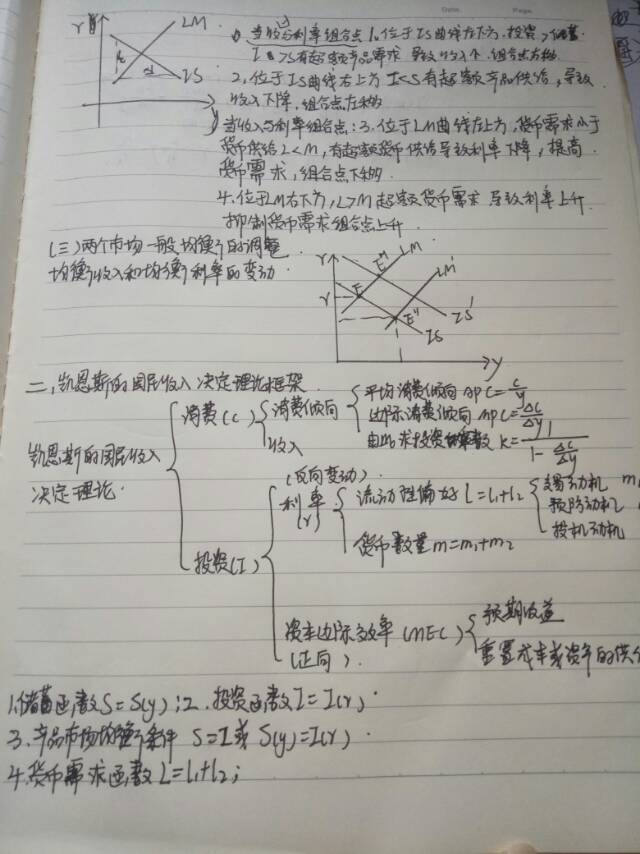 r
LM
IS
y
当收入与利率组合点1.位于IS曲线左下方,投资>储蓄
I>S有超额产品需求 导致收入个.组合点右移
2.位于IS曲线右上方 I<S有超额产品供给,导致
收入下降.组合点左移
当收入与利率组合点:3.位于LM曲线左上方,货币需求小于
货币供给L<M,有超额货币供给导致利率下降,提高
货币需求,组合点下移
4.位于LM右下方,L>M超额货币需求 导致利率上升
抑制货币需求组合点上升
(三)两个市场一般均衡的调整
均衡收入和均衡利率的变动
r
LM
LM'
E
E'
E''
r
IS'
IS
y
二,凯恩斯的国民收入决定理论框架
凯恩斯的国民收入
决定理论
消费(C)
消费倾向
收入
平均消费倾向 APC=c/y
边际消费倾向 MPC=Δc/Δy
由此求投资乘数 k=1/(1-Δc/Δy)
投资(I)
(反向变动)
利率
(r)
流动性偏好 L=L1+L2
交易动机 m
预防动机
投机动机
货币数量 m=m1+m2
资本边际效率(MEC)
(正向)
预期收益
重置成本或资本的供
1.储蓄函数S=S(y);2.投资函数I=I(r)
3.产品市场均衡条件 S=I或S(y)=I(r)
4.货币需求函数L=L1+L2;